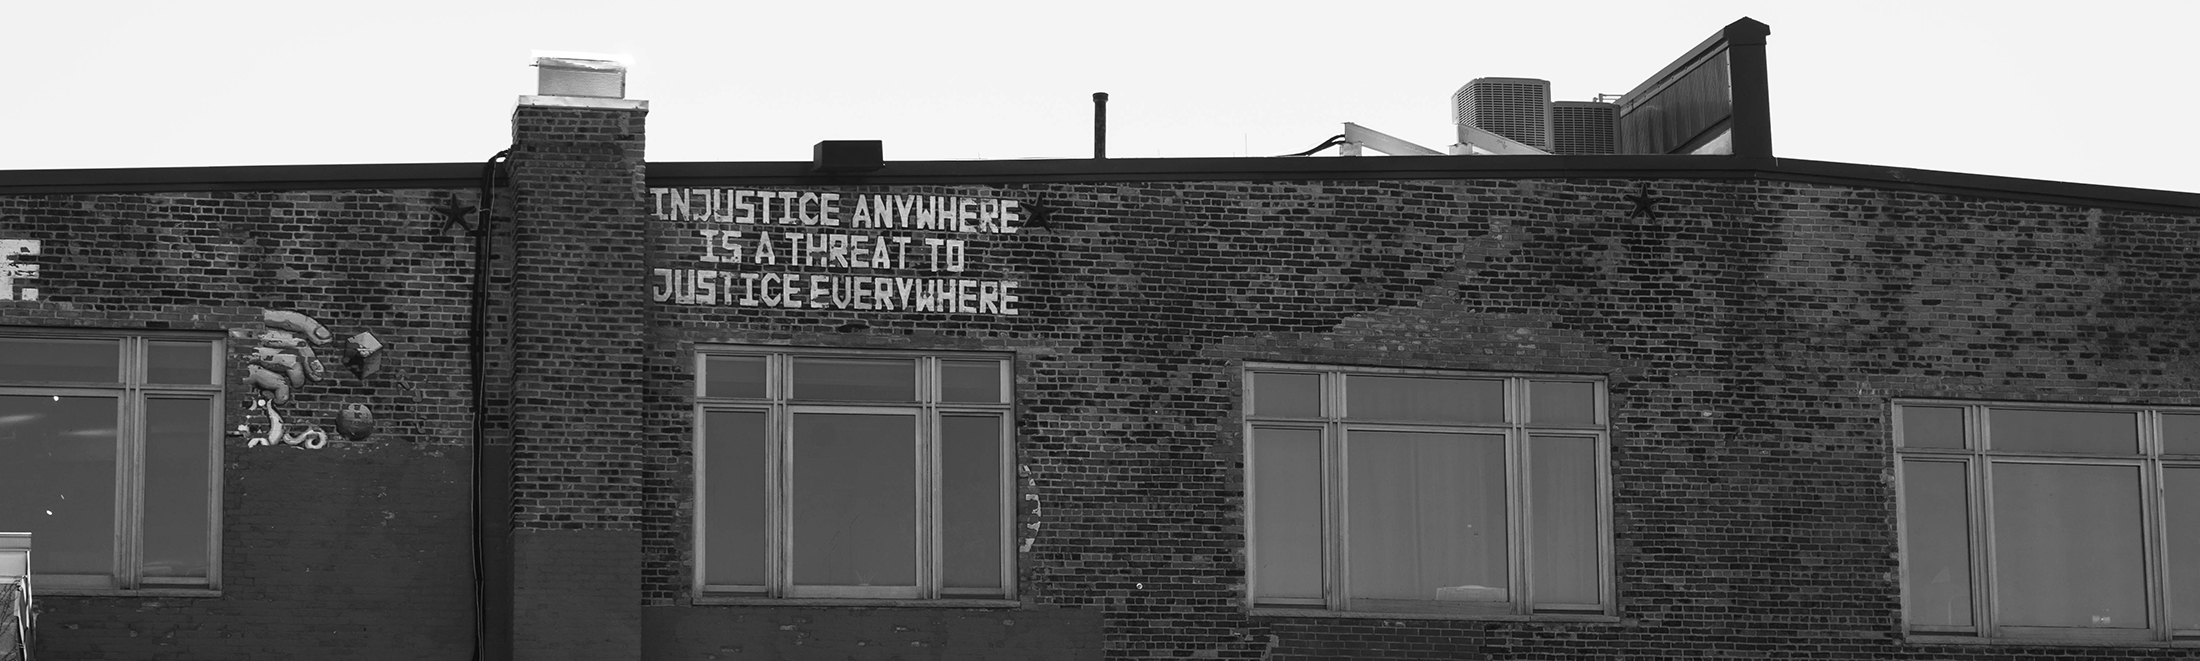 E
INJUSTICE ANYWHERE
IS A THREAT TO
JUSTICE EVERYWHERE